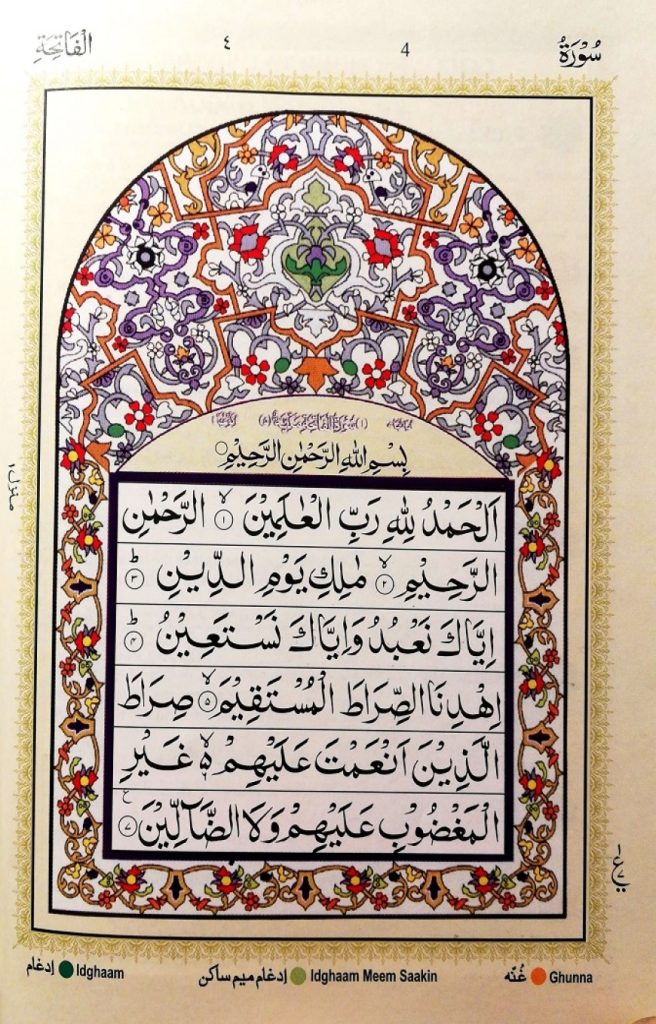 سُوْرَةُ 4 ٤ الْفَاتِحَةِ
بِسْمِ اللهِ الرَّحْمٰنِ الرَّحِيْمِ
اَلْحَمْدُ لِلّٰهِ رَبِّ الْعٰلَمِيْنَ ۙ﴿١﴾ الرَّحْمٰنِ
الرَّحِيْمِ ۙ﴿٢﴾ مٰلِكِ يَوْمِ الدِّيْنِ ؕ﴿٣﴾
اِيَّاكَ نَعْبُدُ وَاِيَّاكَ نَسْتَعِيْنُ ؕ﴿٤﴾
اِهْدِنَا الصِّرَاطَ الْمُسْتَقِيْمَ ۙ﴿٥﴾ صِرَاطَ
الَّذِيْنَ اَنْعَمْتَ عَلَيْهِمْ ۙ۬ غَيْرِ
الْمَغْضُوْبِ عَلَيْهِمْ وَلَا الضَّآلِّيْنَ ﴿٧﴾
منزل ١
إدغام Idghaam إدغام ميم ساكن Idghaam Meem Saakin غُنّه Ghunna